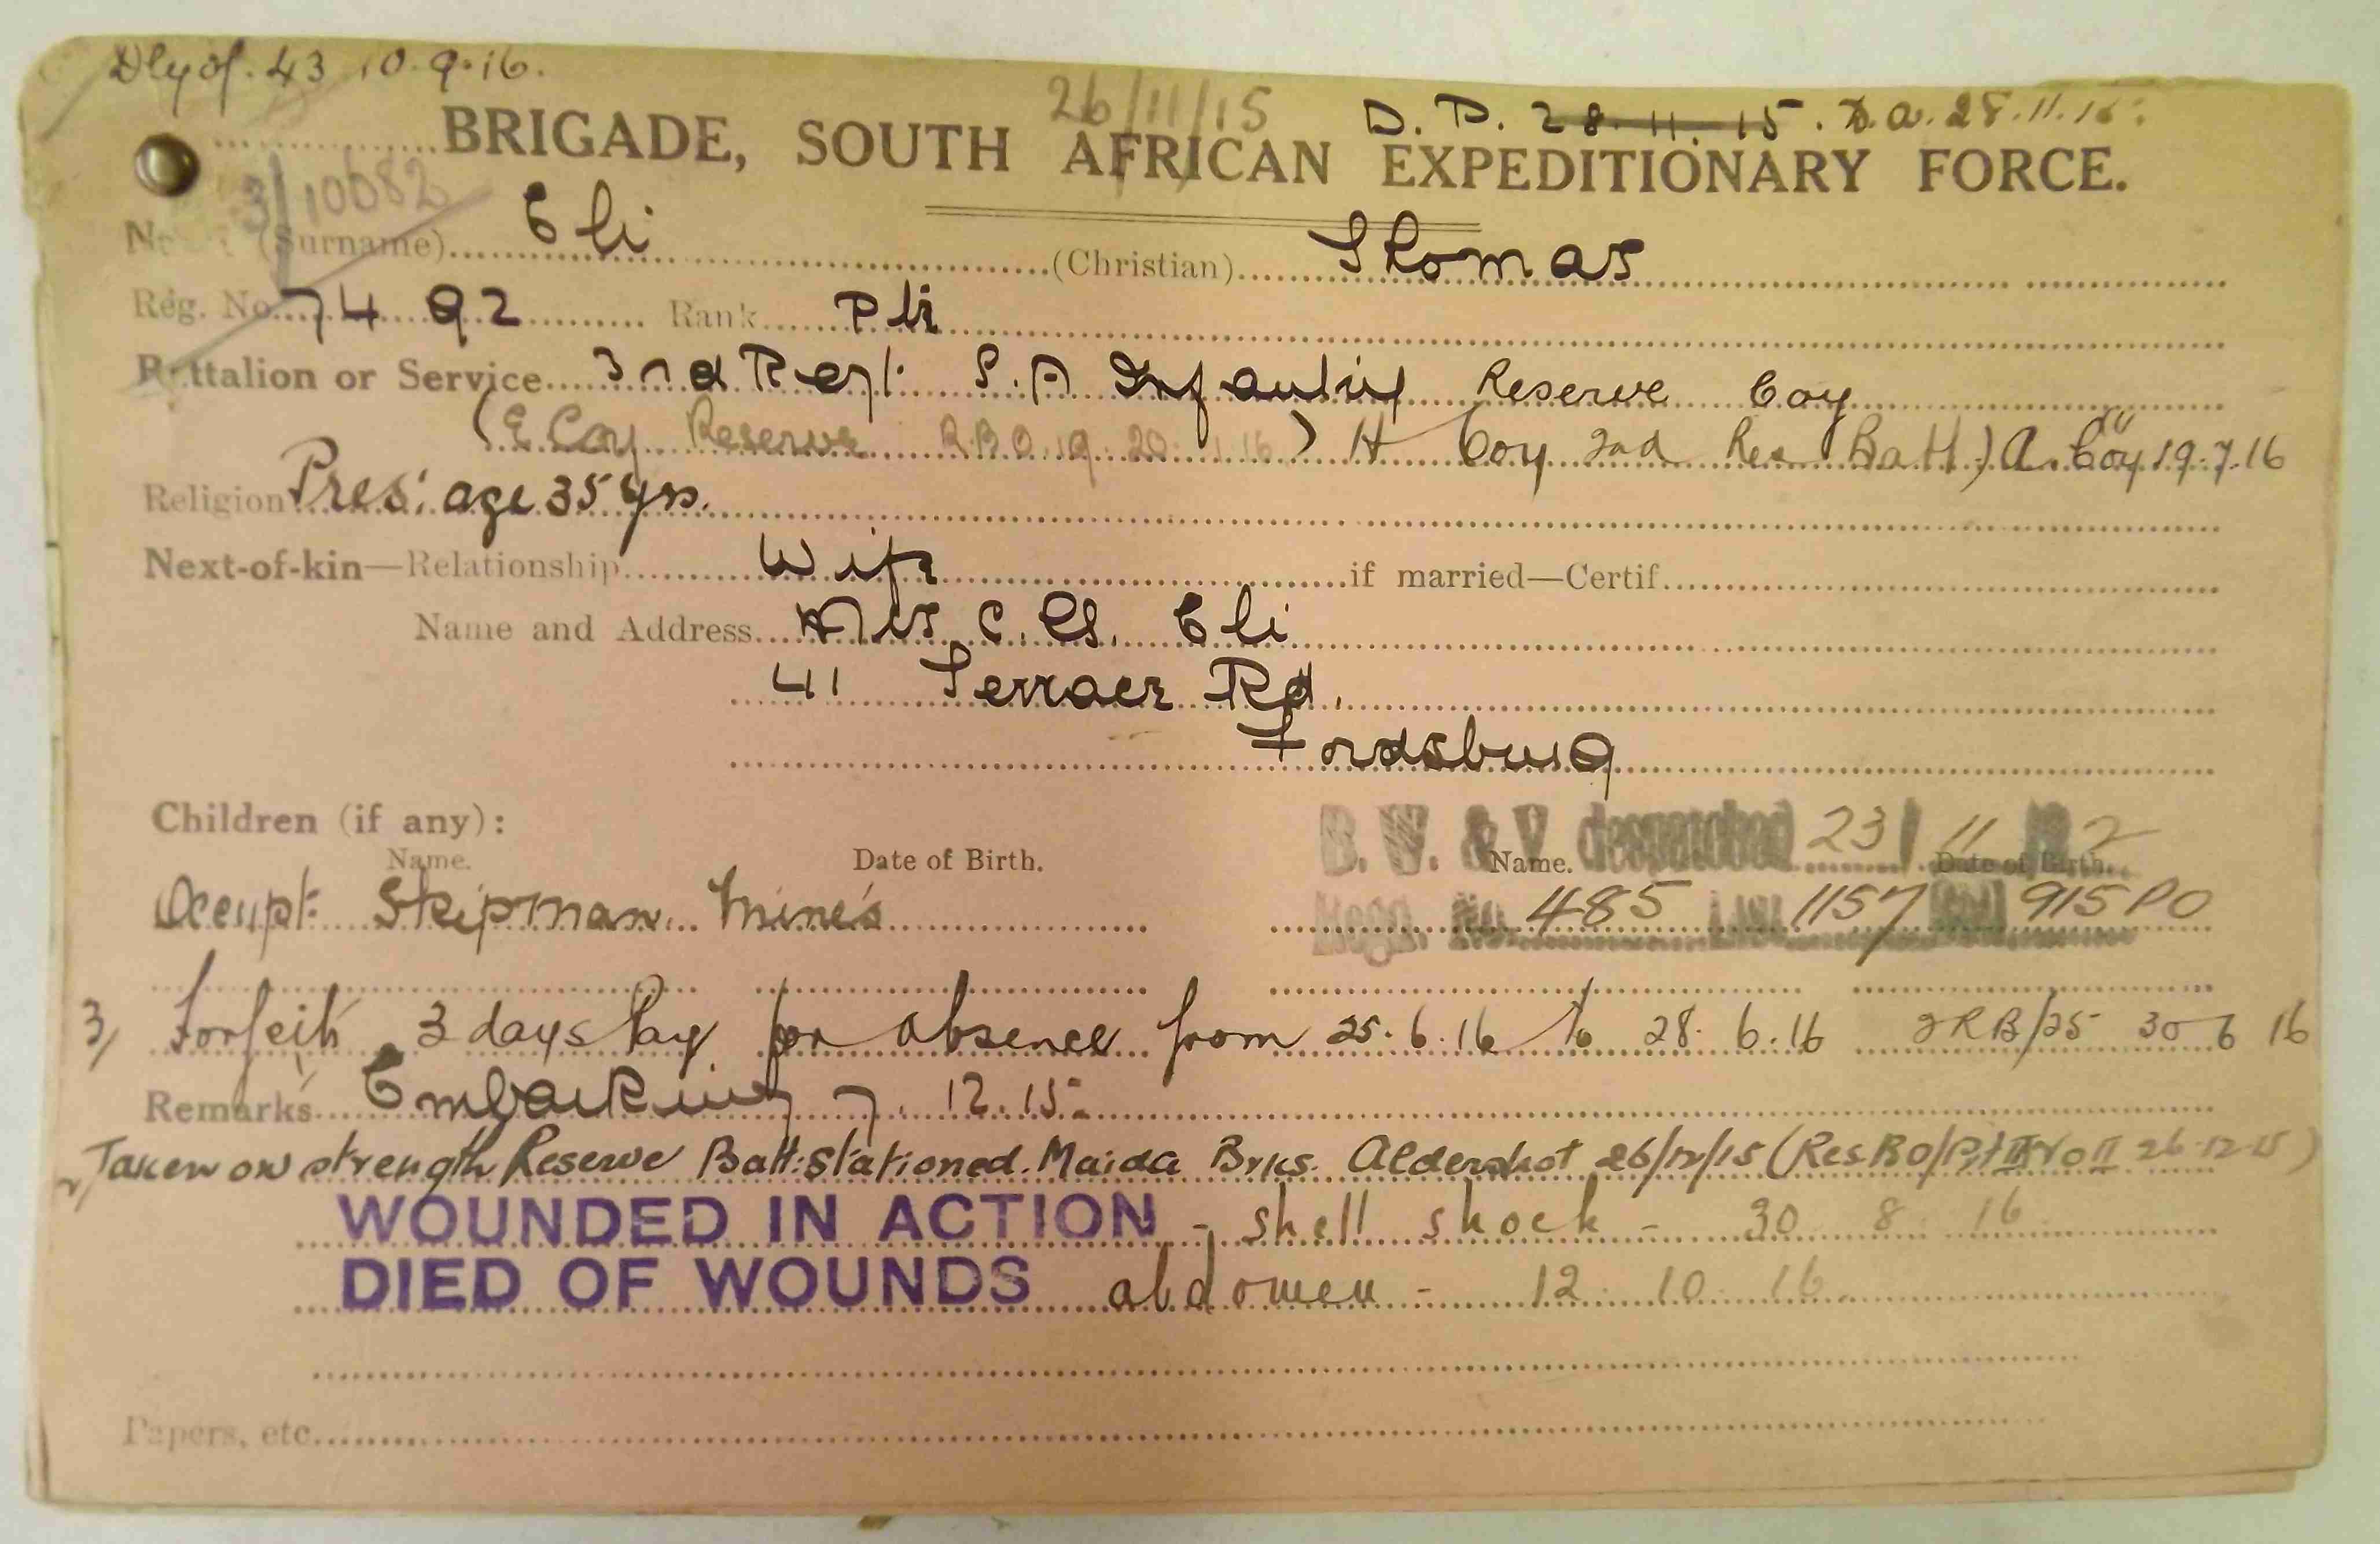 Dly of. 43 10.9.16.
26/11/15 D.P. 28.11.15. D.a. 28.11.15.
BRIGADE, SOUTH AFRICAN EXPEDITIONARY FORCE.
3/10082
(Surname) Eli (Christian) Thomas
Reg. No. 7492 Rank Pte
Battalion or Service 3rd Regt S.A Infantry Reserve Coy
(E Coy Reserve R.B.O. 19. 20. 1.16) H Coy 2nd Res Batt) A. Coy 19.7.16
Religion Pres: age 35 yrs.
Next-of-kin—Relationship Wife if married—Certif.
Name and Address Mrs C. Eli
41 Terrace Rd.
Fordsburg
Children (if any):
B. W. & V. despatched 23/11/22
Name. Date of Birth. Name. Date of Birth.
Occupt: Skipman. Mines
Regn. No 485 List 1157 915 PO
3/ Forfeits 3 days Pay for absence from 25.6.16 to 28.6.16 2RB/25 30 6 16
Remarks Embarking 7.12.15
2/ Taken on strength Reserve Batt: Stationed. Maida Brks. Aldershot 26/12/15 (Res B O/Pt II No II 26-12-15)
WOUNDED IN ACTION - shell shock - 30 8 16
DIED OF WOUNDS abdomen - 12 10 16
Papers, etc.